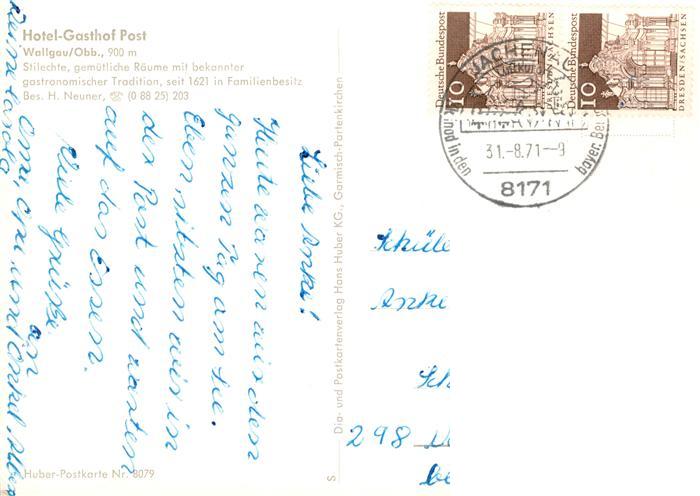 Hotel-Gasthof Post
Wallgau/Obb., 900 m
Stilechte, gemütliche Räume mit bekannter
gastronomischer Tradition, seit 1621 in Familienbesitz
Bes. H. Neuner, ☏ (0 88 25) 203
Liebe Anke!
Heute waren wir den
ganzen Tag am See.
Eben sitzen wir in
der Post und warten
auf das Essen.
Viele Grüße
Omi, Opa und Onkel
Deutsche Bundespost
10
DRESDEN/SACHSEN
Deutsche Bundespost
10
DRESDEN/SACHSEN
31.-8.71-9
8171
bayer.
und in den
Schüle
Anke
Sch
298
be
Dia- und Postkartenverlag Hans Huber KG., Garmisch-Partenkirchen
S
Huber-Postkarte Nr. 8079